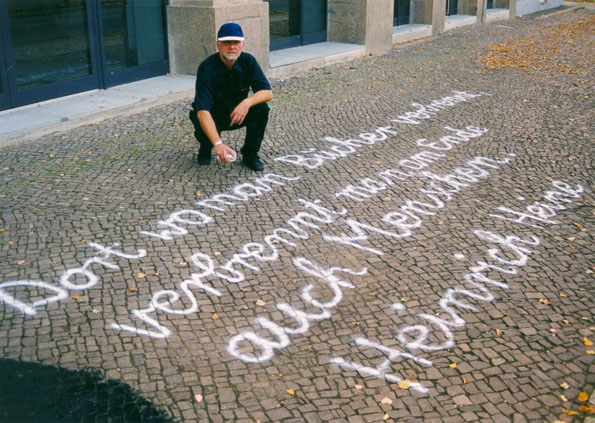 Dort wo man Bücher verbrennt,
verbrennt man am Ende
auch Menschen.
Heinrich Heine